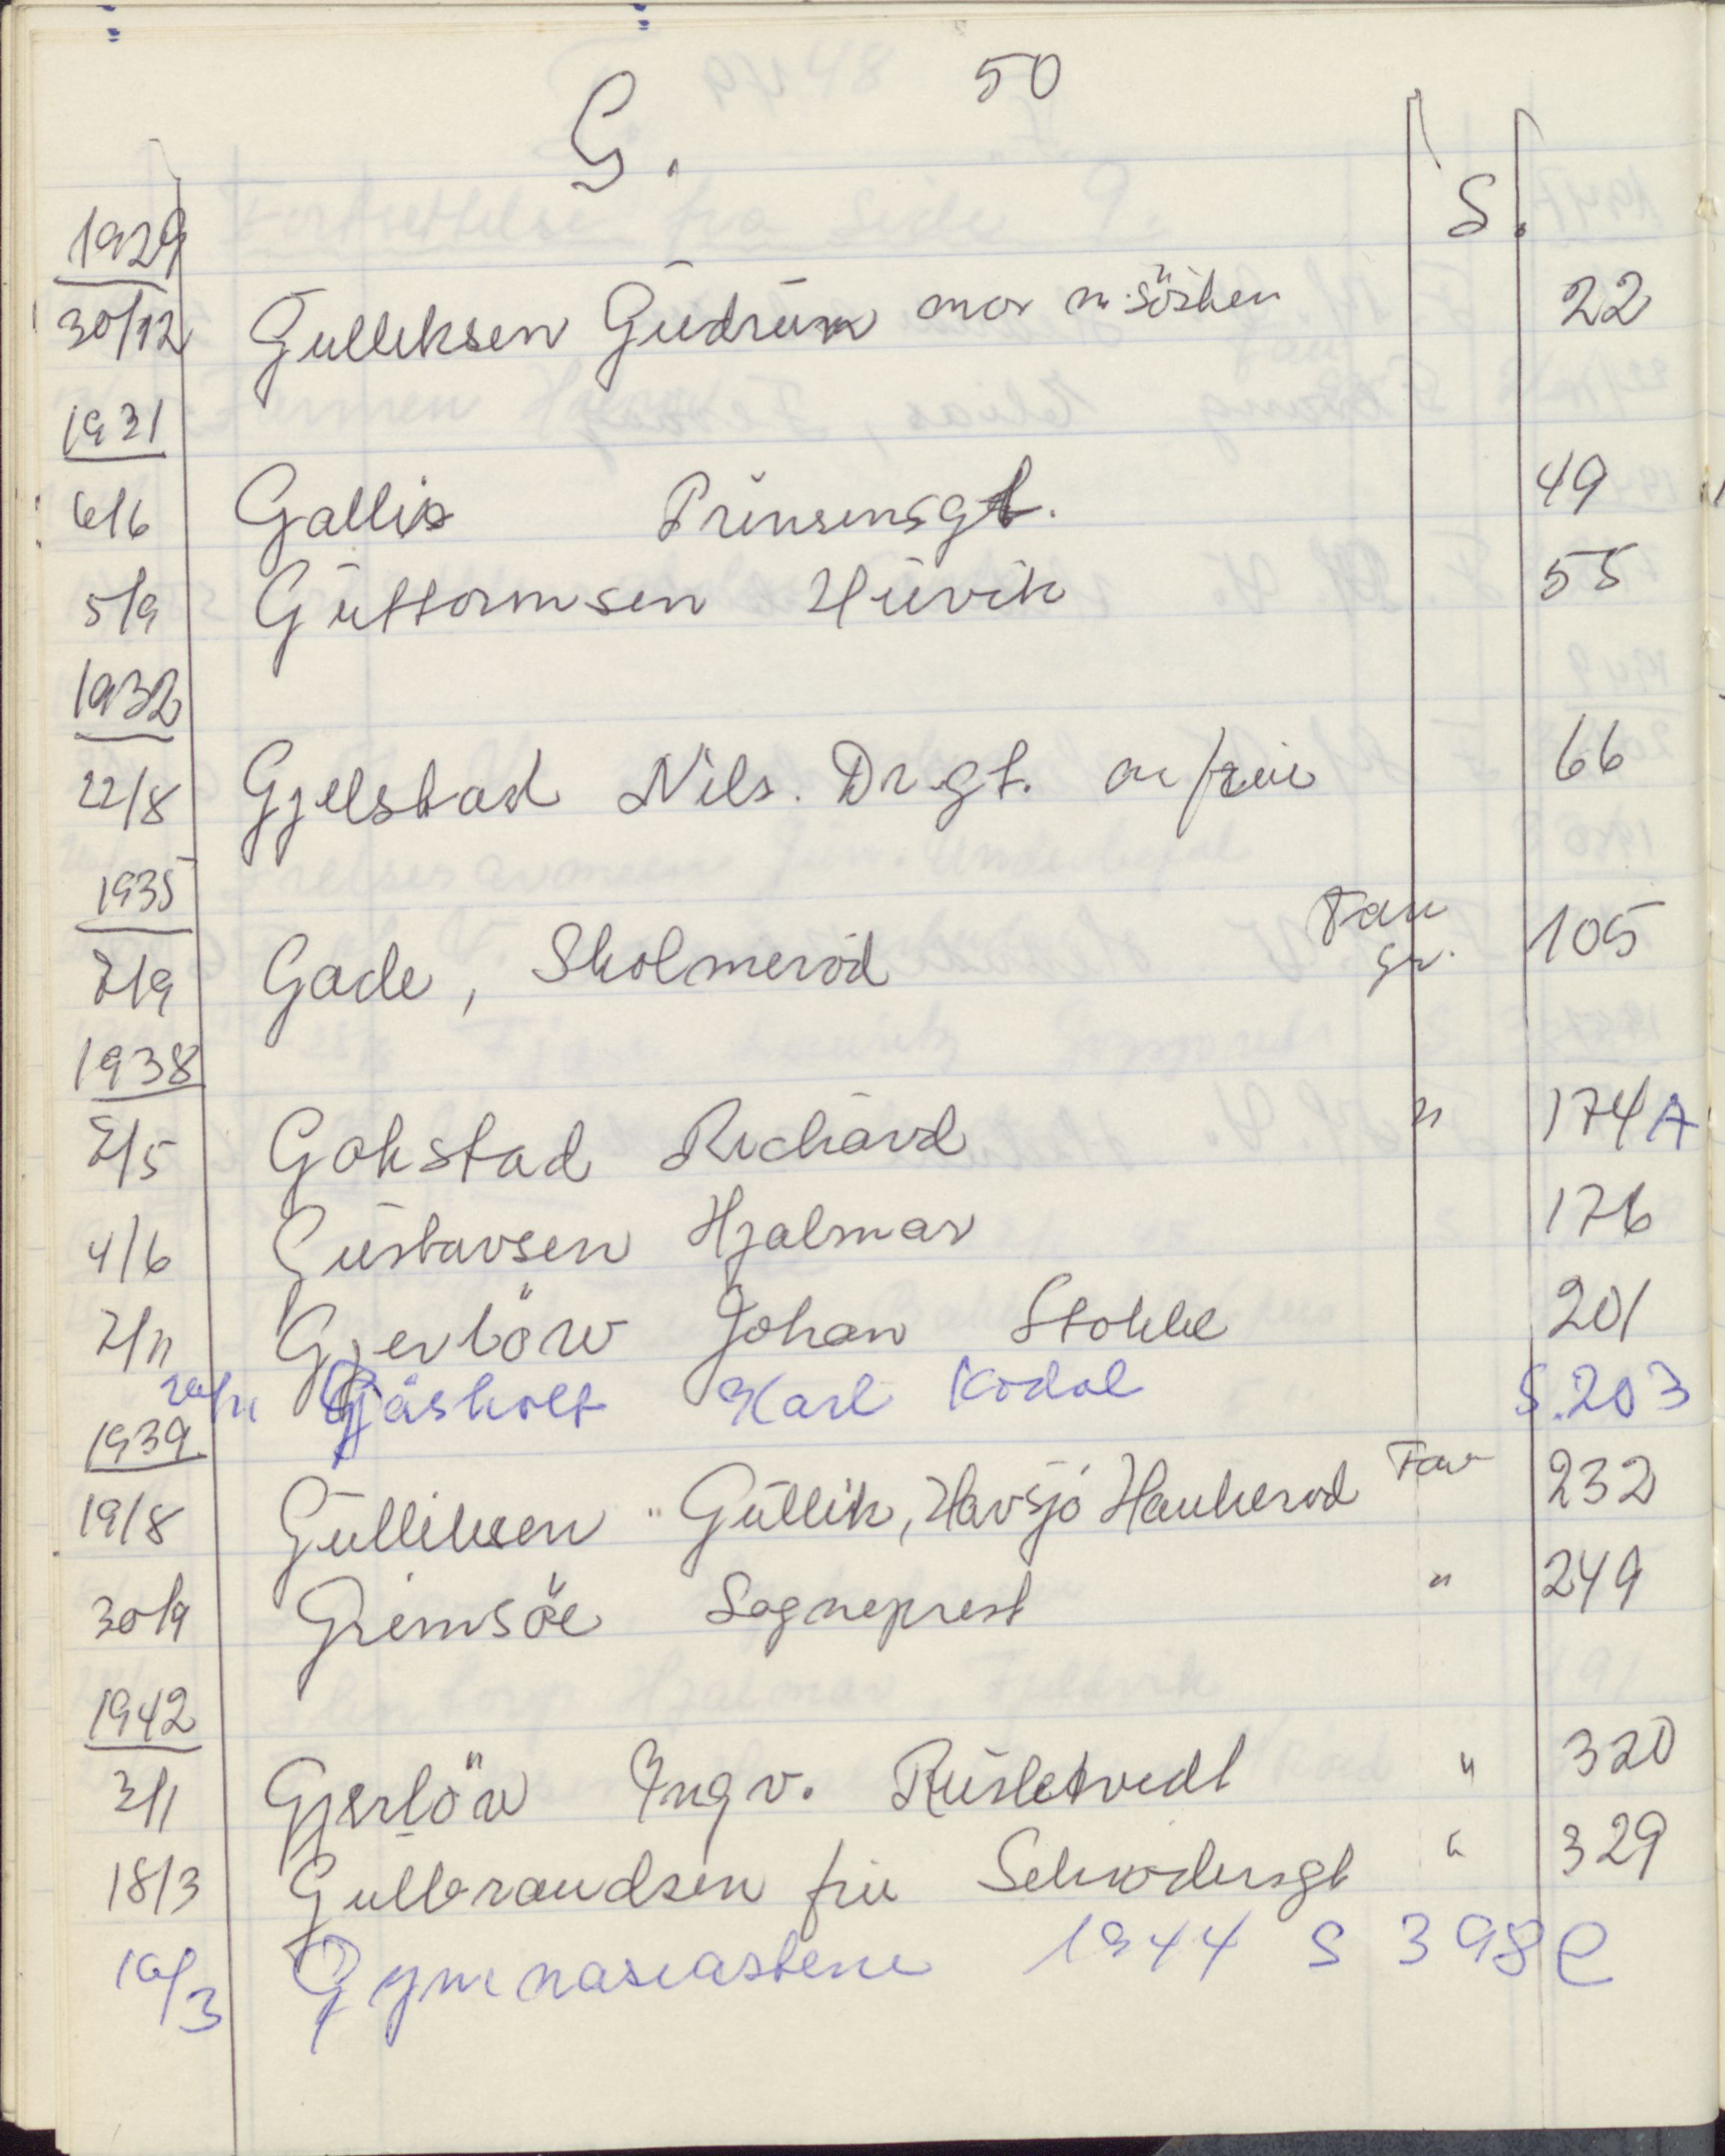 50
G.
S.
1929
30/12 Gulliksen Gudrun mor m. søsken 22
1931
6/6 Gallis Prinsensgt. 49
5/9 Guttormsen Huvik 55
1932
22/8 Gjelstad Nils. Dr.gt. m/frue 66
1935
2/9 Gade, Skolmerød Fam gr. 105
1938
2/5 Gokstad Richard " 174 A
4/6 Gustavsen Hjalmar 176
2/11 Gjerløw Johan Stokke 201
Gjåsholt Karl Kodal S. 203
1939
19/8 Gulliksen Gullik, Havsjø Haukerød Fam 232
30/9 Grimsøe Sogneprest " 249
1942
2/1 Gjerløw Ingv. Russletvedt " 320
18/3 Gulbrandsen fru Schrødersgt " 329
16/3 Gymnasiastene 1944 S 398 C